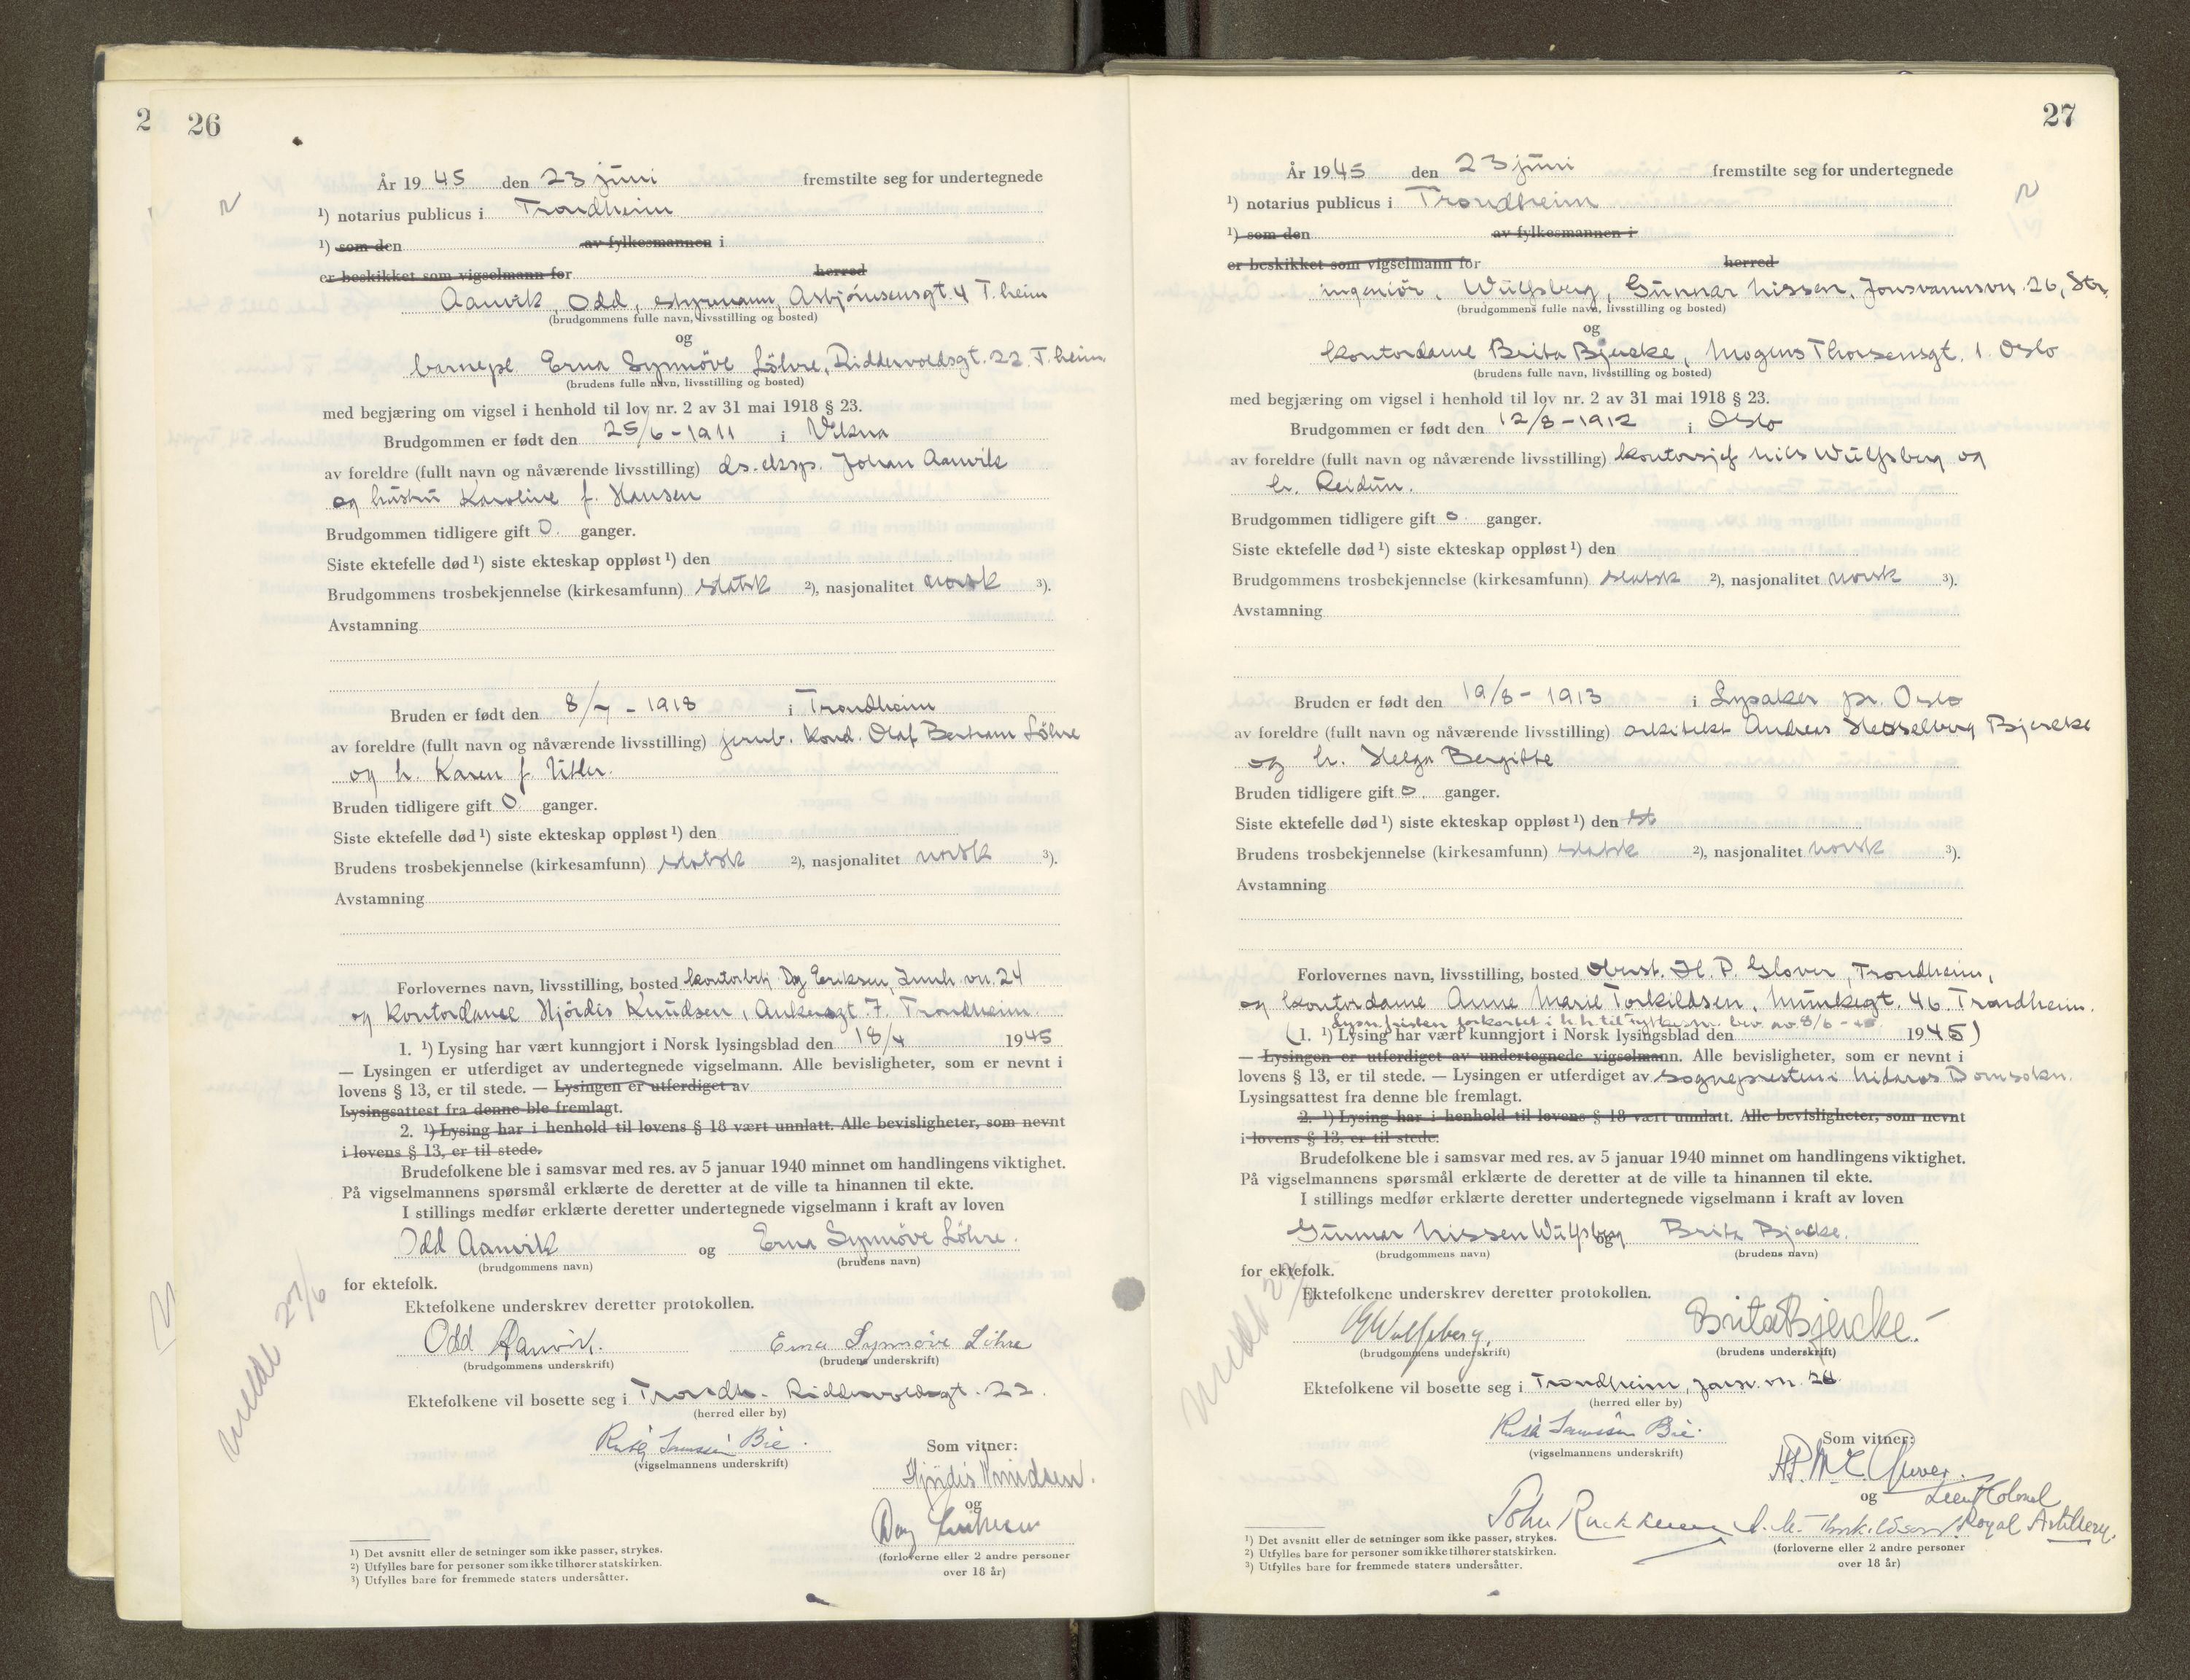 2
26
År 19 45 den 23 juni fremstilte seg for undertegnede
¹) notarius publicus i Trondheim
¹) som den av fylkesmannen i
er beskikket som vigselmann for herred
Aanvik, Odd, styrmann, Asbjörnsensgt. 4 T.heim
(brudgommens fulle navn, livsstilling og bosted)
og
barnepl. Erna Synnöve Löhre, Riddervoldsgt. 22 T.heim
(brudens fulle navn, livsstilling og bosted)
med begjæring om vigsel i henhold til lov nr. 2 av 31 mai 1918 § 23.
Brudgommen er født den 25/6 - 1911 i Vikna
av foreldre (fullt navn og nåværende livsstilling) ds.eksp. Johan Aanvik
og hustru Karoline f. Hansen
Brudgommen tidligere gift 0 ganger.
Siste ektefelle død ¹) siste ekteskap oppløst ¹) den
Brudgommens trosbekjennelse (kirkesamfunn) statsk ²), nasjonalitet norsk ³).
Avstamning
Bruden er født den 8/7 - 1918 i Trondheim
av foreldre (fullt navn og nåværende livsstilling) jernb. kond. Olaf Bertram Löhre
og h. Karen f. Utler.
Bruden tidligere gift 0 ganger.
Siste ektefelle død ¹) siste ekteskap oppløst ¹) den
Brudens trosbekjennelse (kirkesamfunn) statsk ²), nasjonalitet norsk ³).
Avstamning
Forlovernes navn, livsstilling, bosted kontorbetj Dag Eriksen, vn. 24
og kontordame Hjördis Knudsen, Ankersgt. 7. Trondheim.
1. ¹) Lysing har vært kunngjort i Norsk lysingsblad den 18/4 1945
— Lysingen er utferdiget av undertegnede vigselmann. Alle bevisligheter, som er nevnt i
lovens § 13, er til stede. — Lysingen er utferdiget av
Lysingsattest fra denne ble fremlagt.
2. ¹) Lysing har i henhold til lovens § 18 vært unnlatt. Alle bevisligheter, som nevnt
i lovens § 13, er til stede.
Brudefolkene ble i samsvar med res. av 5 januar 1940 minnet om handlingens viktighet.
På vigselmannens spørsmål erklærte de deretter at de ville ta hinannen til ekte.
I stillings medfør erklærte deretter undertegnede vigselmann i kraft av loven
Odd Aanvik og Erna Synnöve Löhre.
(brudgommens navn) (brudens navn)
for ektefolk.
Ektefolkene underskrev deretter protokollen.
Odd Aanvik. Erna Synnöve Löhre
(brudgommens underskrift) (brudens underskrift)
Ektefolkene vil bosette seg i Trondh. Riddervoldsgt. 22.
(herred eller by)
Bie. Som vitner:
(vigselmannens underskrift)
Hjördis Knudsen.
og
Dag Eriksen
(forloverne eller 2 andre personer
over 18 år)
¹) Det avsnitt eller de setninger som ikke passer, strykes.
²) Utfylles bare for personer som ikke tilhører statskirken.
³) Utfylles bare for fremmede staters undersåtter.
melde 27/6
27
År 1945 den 23 juni fremstilte seg for undertegnede
¹) notarius publicus i Trondheim
¹) som den av fylkesmannen i
er beskikket som vigselmann for herred
ingeniör, Wulfsberg, Gunnar Nissen, Jonsvannsvn. 26, Str.
(brudgommens fulle navn, livsstilling og bosted)
og
kontordame Brita Bjercke, Mogens Thorsensgt. 1. Oslo
(brudens fulle navn, livsstilling og bosted)
med begjæring om vigsel i henhold til lov nr. 2 av 31 mai 1918 § 23.
Brudgommen er født den 12/8 - 1912 i Oslo
av foreldre (fullt navn og nåværende livsstilling) kontorsjef Nils Wulfsberg og
h. Reidun.
Brudgommen tidligere gift 0 ganger.
Siste ektefelle død ¹) siste ekteskap oppløst ¹) den
Brudgommens trosbekjennelse (kirkesamfunn) statsk ²), nasjonalitet norsk ³).
Avstamning
Bruden er født den 19/8 - 1913 i Lysaker pr. Oslo
av foreldre (fullt navn og nåværende livsstilling) arkitekt Andreas Hesselberg Bjercke
og h. Helga Bergitte
Bruden tidligere gift 0 ganger.
Siste ektefelle død ¹) siste ekteskap oppløst ¹) den
Brudens trosbekjennelse (kirkesamfunn) statsk ²), nasjonalitet norsk ³).
Avstamning
Forlovernes navn, livsstilling, bosted oberst. H. P. Glover, Trondheim,
og kontordame Anne Marie Torkildsen, Munkegt. 46. Trondheim.
Lysn.fristen forkortet i h.h. til fylkesm. bev. av 8/6 - 45
(1. ¹) Lysing har vært kunngjort i Norsk lysingsblad den 1945)
— Lysingen er utferdiget av undertegnede vigselmann. Alle bevisligheter, som er nevnt i
lovens § 13, er til stede. — Lysingen er utferdiget av sognepresten i Nidaros Domsokn.
Lysingsattest fra denne ble fremlagt.
2. ¹) Lysing har i henhold til lovens § 18 vært unnlatt. Alle bevisligheter, som nevnt
i lovens § 13, er til stede.
Brudefolkene ble i samsvar med res. av 5 januar 1940 minnet om handlingens viktighet.
På vigselmannens spørsmål erklærte de deretter at de ville ta hinannen til ekte.
I stillings medfør erklærte deretter undertegnede vigselmann i kraft av loven
Gunnar Nissen Wulfsberg og Brita Bjercke.
(brudgommens navn) (brudens navn)
for ektefolk.
Ektefolkene underskrev deretter protokollen.
GWulfsberg. Brita Bjercke.
(brudgommens underskrift) (brudens underskrift)
Ektefolkene vil bosette seg i Trondheim, Jonsv. vn. 26.
(herred eller by)
Bie. Som vitner:
(vigselmannens underskrift)
Glover.
og Lieut Colonel
John A. M. Thorkildsen. Royal Artillery.
(forloverne eller 2 andre personer
over 18 år)
¹) Det avsnitt eller de setninger som ikke passer, strykes.
²) Utfylles bare for personer som ikke tilhører statskirken.
³) Utfylles bare for fremmede staters undersåtter.